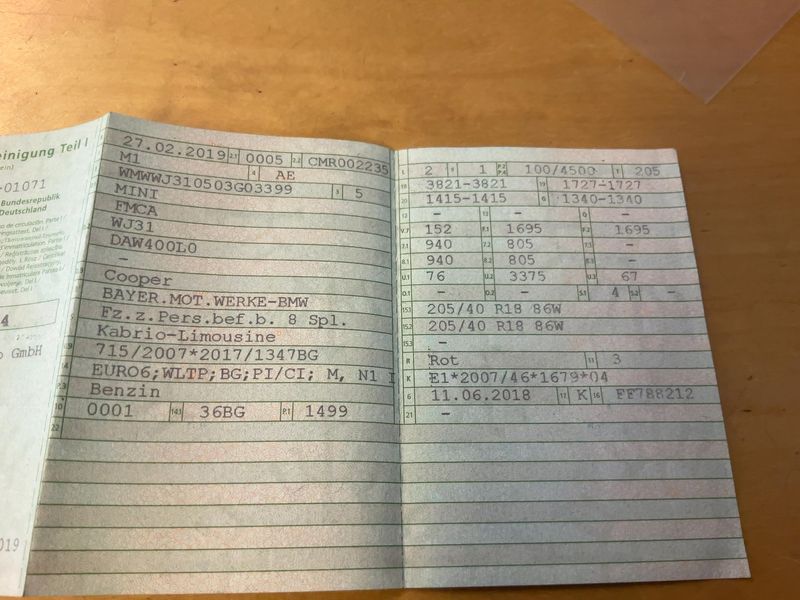 einigung Teil I
-01071
Bundesrepublik
Deutschland
4
GmbH
019
27.02.2019 2.1 0005 2.2 CMR002235
M1 4 AE
WMWWJ310503G03399 3 5
MINI
FMCA
WJ31
DAW400L0
–
Cooper
BAYER.MOT.WERKE-BMW
Fz.z.Pers.bef.b. 8 Spl.
Kabrio-Limousine
715/2007*2017/1347BG
EURO6;WLTP;BG;PI/CI; M, N1 I
Benzin
10 0001 14.1 36BG P.1 1499
22
L 2 9 1 P.2 P.4 100/4500 T 205
18 3821-3821 19 1727-1727
20 1415-1415 G 1340-1340
12 – 13 – Q –
V.7 152 F.1 1695 F.2 1695
7.1 940 7.2 805 7.3 –
8.1 940 8.2 805 8.3 –
U.1 76 U.2 3375 U.3 67
O.1 – O.2 – S.1 4 S.2 –
15.1 205/40 R18 86W
15.2 205/40 R18 86W
15.3 –
R Rot 11 3
K E1*2007/46*1679*04
6 11.06.2018 17 K 16 FF788212
21 –